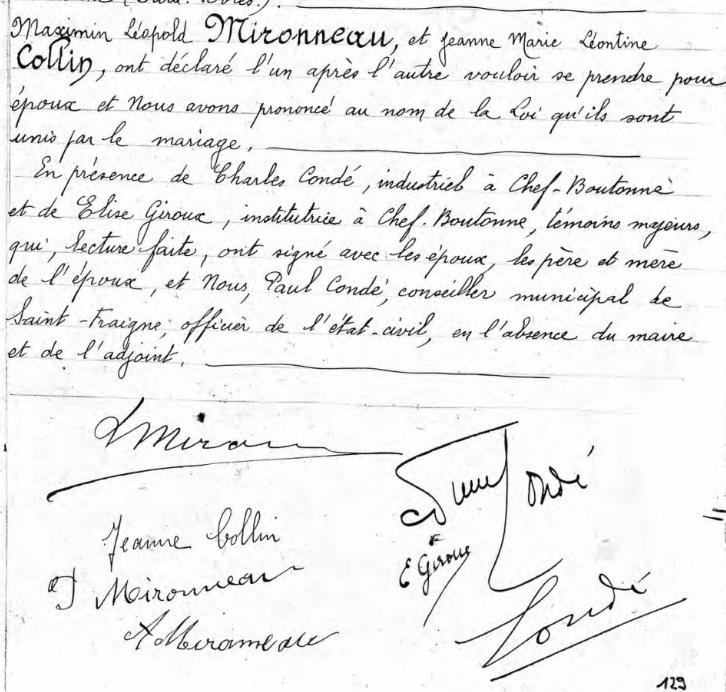 Maximin Léopold Mironneau, et Jeanne Marie Léontine
Collin, ont déclaré l'un après l'autre vouloir se prendre pour
époux et Nous avons prononcé au nom de la Loi qu'ils sont
unis par le mariage.
En présence de Charles Condé, industriel à Chef-Boutonne
et de Elise Giroux, institutrice à Chef-Boutonne, témoins majeurs,
qui, lecture faite, ont signé avec les époux, les père et mère
de l'époux, et Nous, Paul Condé, conseiller municipal de
Saint-Fraigne, officier de l'état-civil, en l'absence du maire
et de l'adjoint.
L Miron
Condé
Jeanne Collin
E Giroux
Mironneau
Condé
A Mironneau
129